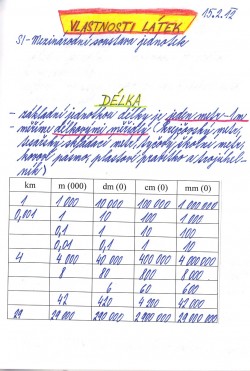 15.2.12
VLASTNOSTI LÁTEK
SI - Mezinárodní soustava jednotek
DÉLKA
- základní jednotkou délky je jeden metr - 1m
- měříme délkovými měřidly (krejčovský metr,
svářský skládací metr, tyčový školní metr,
kovové pásmo, plastové pravítko a trojúhel-
ník)
km m (000) dm (0) cm (0) mm (0)
1 1 000 10 000 100 000 1 000 000
0,001 1 10 100 1 000
0,1 1 10 100
0,01 0,1 1 10
4 4 000 40 000 400 000 4 000 000
8 80 800 8 000
6 60 600
42 420 4 200 42 000
29 29 000 290 000 2 900 000 29 000 000